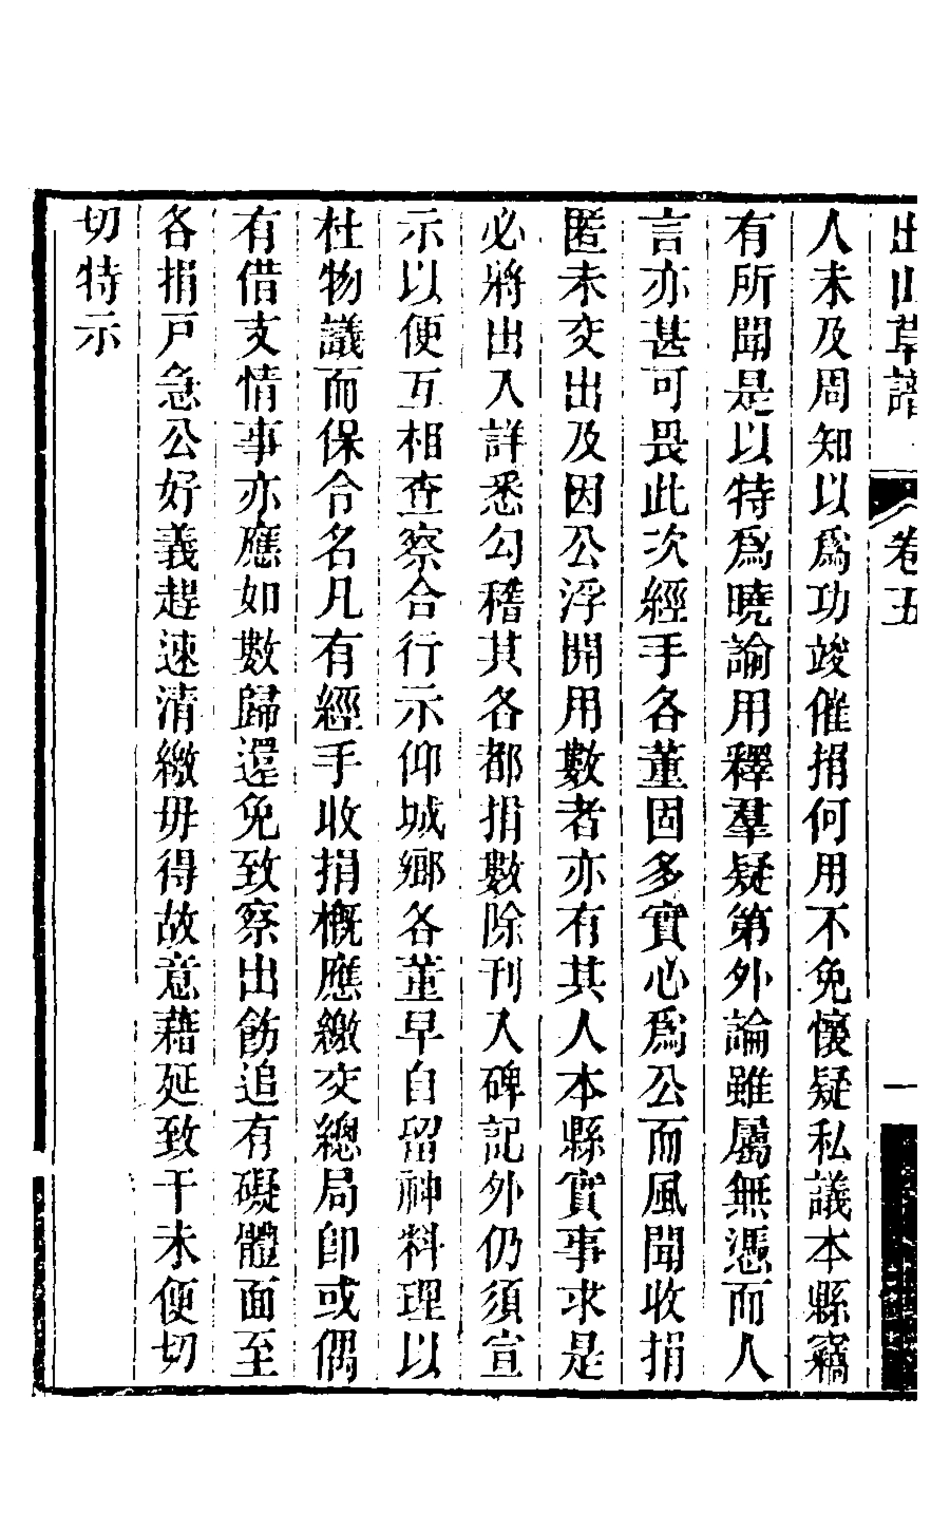 出山草譜 卷五 一
人未及周知以爲功竣催捐何用不免懷疑私議本縣竊
有所聞是以特爲曉諭用釋羣疑第外論雖屬無憑而人
言亦甚可畏此次經手各董固多實心爲公而風聞收捐
匿未交出及因公浮開用數者亦有其人本縣實事求是
必將出入詳悉勾稽其各都捐數除刊入碑記外仍須宣
示以便互相查察合行示仰城鄉各董早自留神料理以
杜物議而保合名凡有經手收捐槪應繳交總局卽或偶
有借支情事亦應如數歸還免致察出飭追有礙體面至
各捐戸急公好義趕速清繳毋得故意藉延致干未便切
切特示